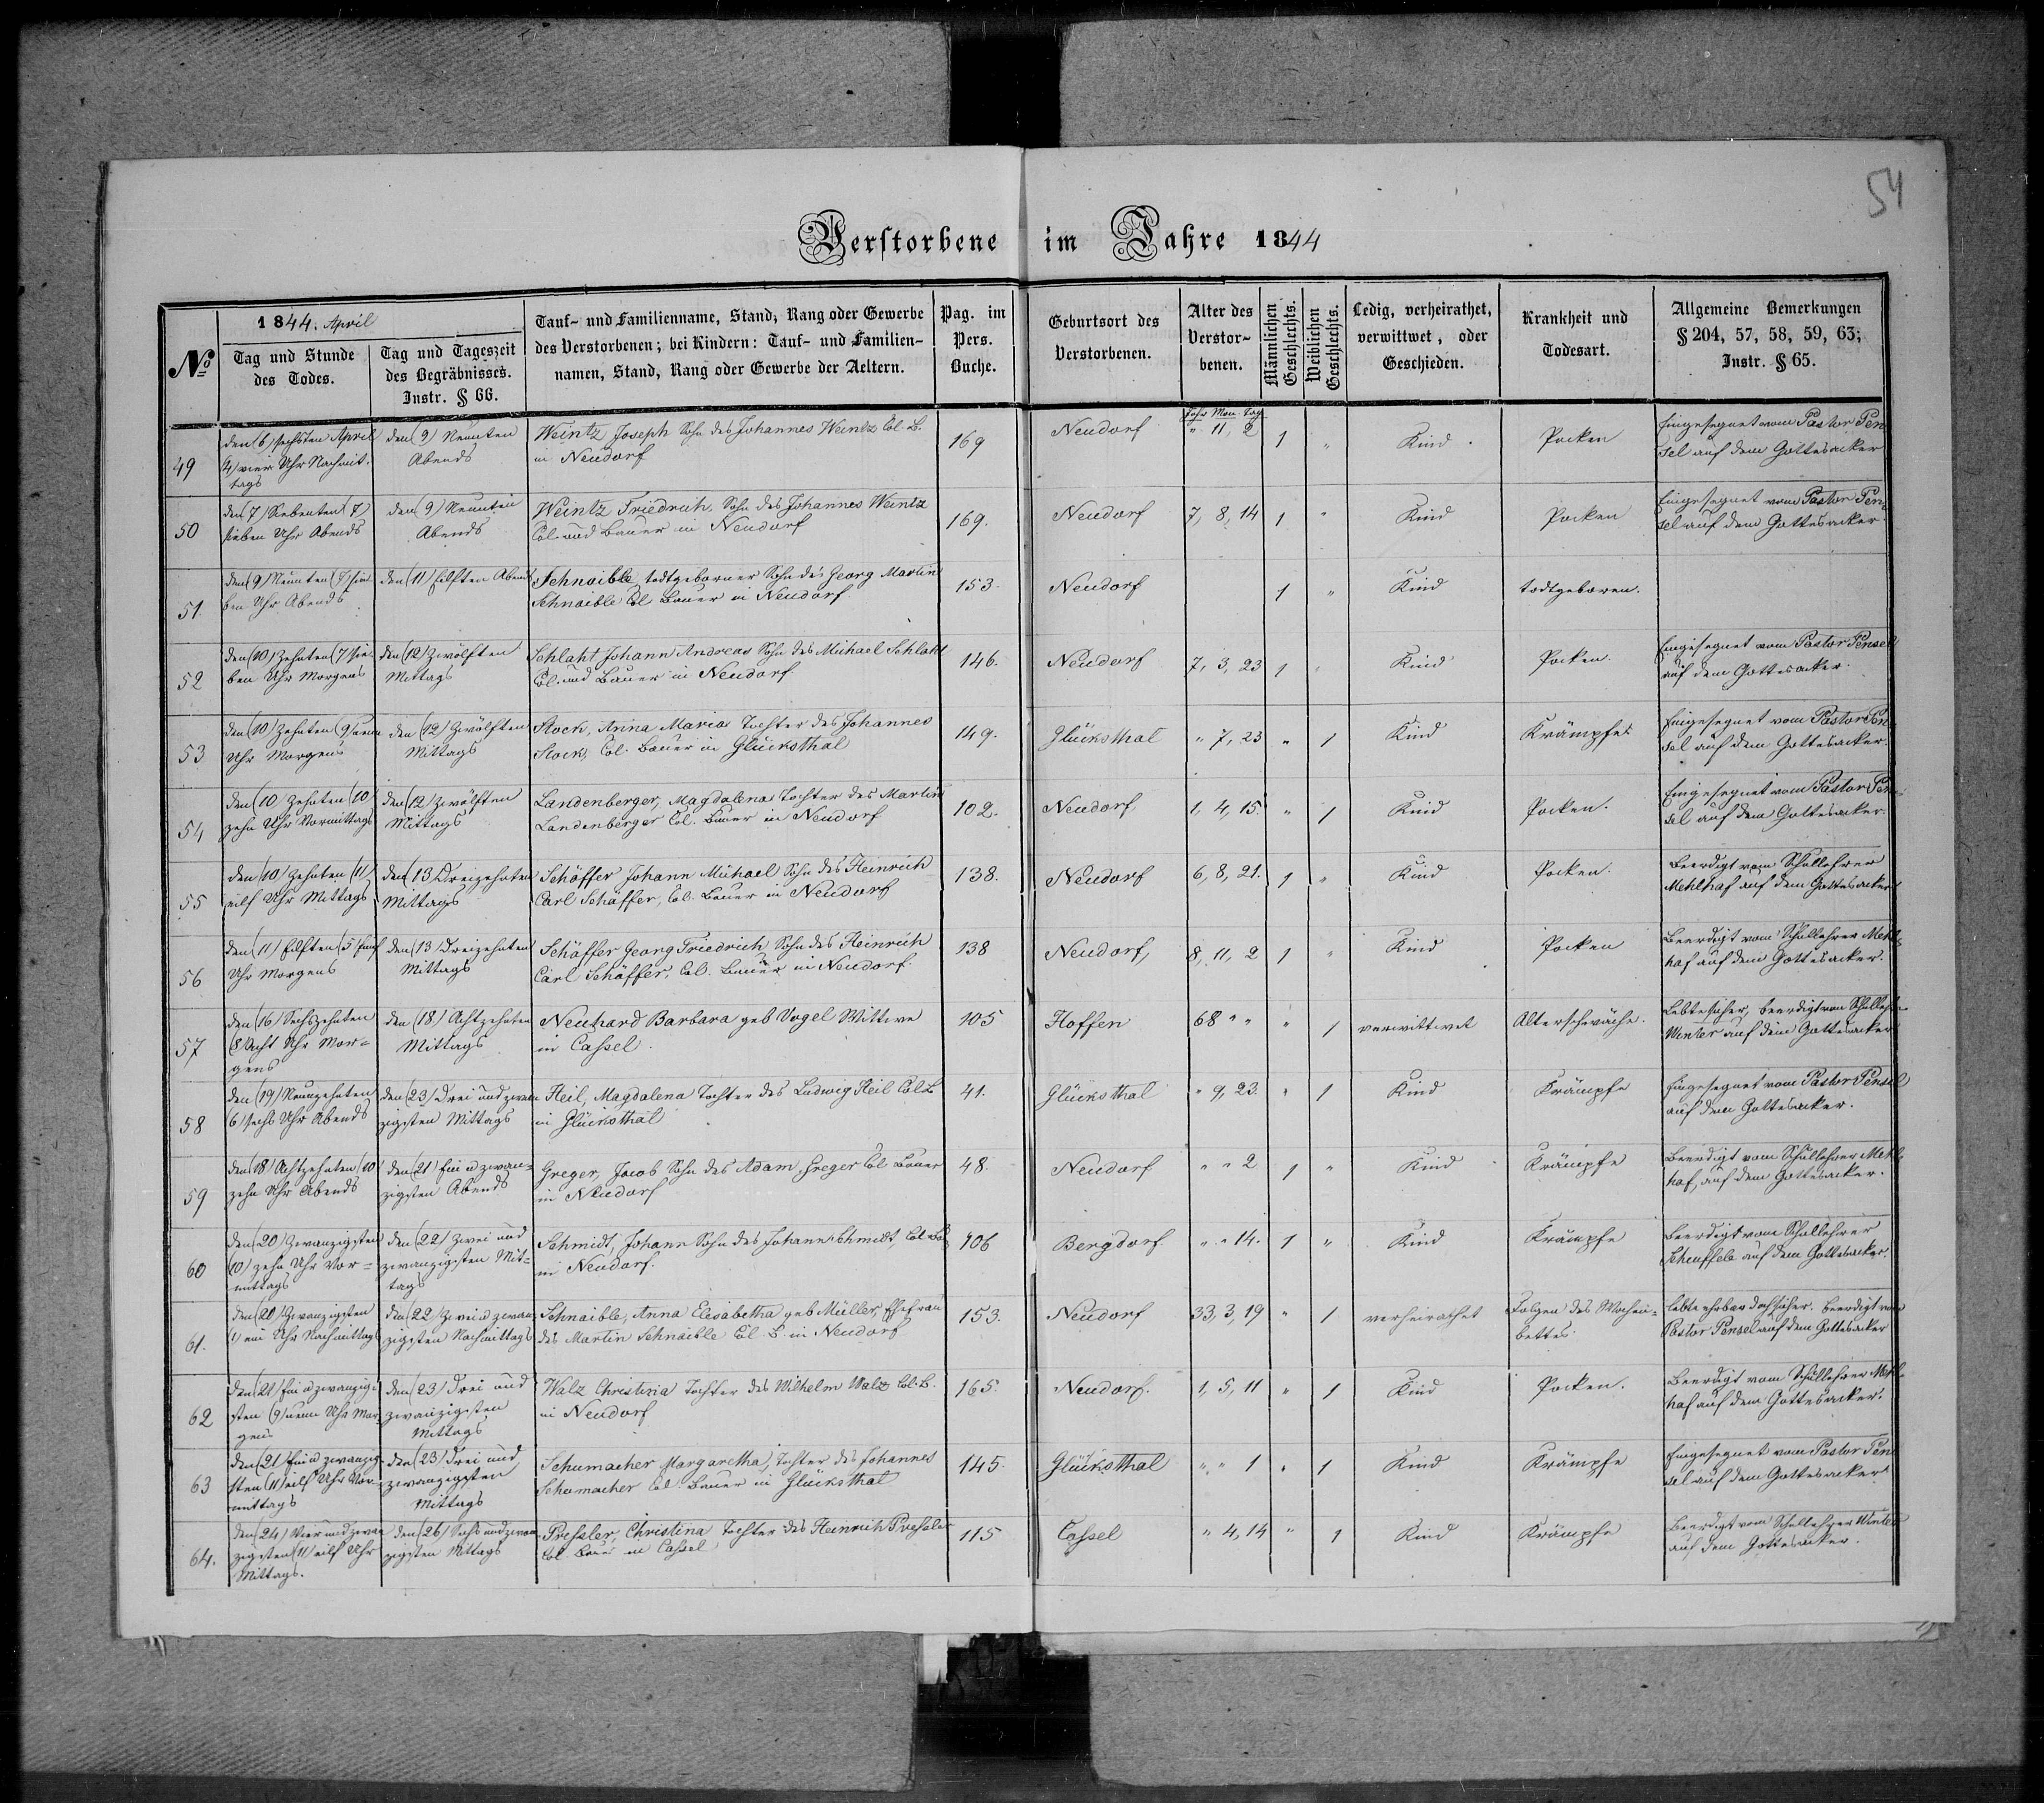 54
Verstorbene im Jahre 1844
No
1844. April
Tag und Stunde
des Todes.
Tag und Tageszeit
des Begräbnisses.
Instr. § 66.
Tauf- und Familienname, Stand, Rang oder Gewerbe
des Verstorbenen; bei Kindern: Tauf- und Familien-
namen, Stand, Rang oder Gewerbe der Aeltern.
Pag. im
Pers.
Buche.
Geburtsort des
Verstorbenen.
Alter des
Verstor-
benen.
Männlichen
Geschlechts.
Weiblichen
Geschlechts.
Ledig, verheirathet,
verwittwet, oder
Geschieden.
Krankheit und
Todesart.
Allgemeine Bemerkungen
§ 204, 57, 58, 59, 63;
Instr. § 65.
Jahr Mon. Tag
49
den (6) sechsten April
(4) vier Uhr Nachmit-
tags
den (9) Neunten
Abends
Weintz Joseph Sohn des Johannes Weintz Col. B.
in Neudorf
169
Neudorf
" 11, 2
1
"
Kind
Pocken
Eingesegnet vom Pastor Pen
sel auf dem Gottesacker
50
den (7) Siebenten (7)
sieben Uhr Abends
den (9) Neunten
Abends
Weintz Friedrich, Sohn des Johannes Weintz
Col. und Bauer in Neudorf
169.
Neudorf
7, 8, 14
1
"
Kind
Pocken
Eingesegnet vom Pastor Pen-
sel auf dem Gottesacker
51.
den (9) Neunten (7) sie-
ben Uhr Abends
den (11) Eilften Abends
Schnaible, todtgeborner Sohn des Georg Martin
Schnaible Col Bauer in Neudorf
153.
Neudorf
1
"
Kind
todtgeboren.
52
den (10) Zehnten (7) sie-
ben Uhr Morgens
den (12) Zwölften
Mittags
Schlaht Johann Andreas Sohn des Michael Schlaht
Col. und Bauer in Neudorf.
146.
Neudorf
7, 3, 23
1
"
Kind
Pocken.
Eingesegnet vom Pastor Pensel
auf dem Gottesacker.
53
den (10) Zehnten (9) neun
Uhr Morgens
den (12) Zwölften
Mittags
Stock, Anna Maria Tochter des Johannes
Stock, Col. Bauer in Glücksthal
149.
Glücksthal
" 7, 23
"
1
Kind
Krämpfe
Eingesegnet vom Pastor Pen-
sel auf dem Gottesacker.
54
den (10) Zehnten (10)
zehn Uhr Vormittags
den (12) Zwölften
Mittags
Landenberger, Magdalena Tochter des Martin
Landenberger Col. Bauer in Neudorf
102.
Neudorf
1, 4, 15.
"
1
Kind
Pocken.
Eingesegnet vom Pastor Pen-
sel auf dem Gottesacker.
55
den (10) Zehnten (11)
eilf Uhr Mittags
den (13) Dreizehnten
Mittags
Schäffer Johann Michael Sohn des Heinrich
Carl Schäffer, Col. Bauer in Neudorf
138.
Neudorf
6, 8, 21.
1
"
Kind
Pocken.
Beerdigt vom Schullehrer
Mehlhaf auf dem Gottesacker
56
den (11) Eilften (5) fünf
Uhr Morgens
den (13) Dreizehnten
Mittags
Schäffer Georg Friedrich, Sohn des Heinrich
Carl Schäffer, Col. Bauer in Neudorf.
138
Neudorf,
8, 11, 2
1
"
Kind
Pocken
Beerdigt vom Schullehrer Mehl-
haf auf dem Gottesacker.
57
den (16) Sechszehnten
(8) Acht Uhr Mor-
gens
den (18) Achtzehnten
Mittags
Neuhard Barbara geb Vogel Wittwe
in Cassel.
105
Hoffen
68 " "
"
1
verwittwet
Altersschwäche.
Winter auf dem Gottesacker
58
den (19) Neunzehnten
(6) sechs Uhr Abends
den (23) Drei und zwan
zigsten Mittags
Heil, Magdalena Tochter des Ludwig Heil Col B
in Glücksthal
41.
Glücksthal
" 9, 23.
"
1
Kind
Krämpfe
Eingesegnet vom Pastor Pensel
auf dem Gottesacker.
59
den (18) Achtzehnten (10)
zehn Uhr Abends
den (21) Ein u zwan-
zigsten Abends
Greger, Jacob Sohn des Adam Greger Col Bauer
in Neudorf
48.
Neudorf
" " 2
1
"
Kind
Krämpfe
Beerdigt vom Schullehrer Mehl-
haf, auf dem Gottesacker.
60
den (20) Zwanzigsten
(10) zehn Uhr Vor-
mittags
den (22) Zwei und
zwanzigsten Mit-
tags
Schmidt, Johann Sohn des Johann Schmidt, Col Ba
in Neudorf.
106
Bergdorf
" " 14.
1
"
Kind
Krämpfe
Beerdigt vom Schullehrer
Scheuffele auf dem Gottesacker.
61.
den (20) Zwanzigsten
(1) ein Uhr Nachmittags
den (22) Zwei u zwan
zigsten Nachmittags
Schnaible, Anna Elisabetha geb Müller, Ehefrau
des Martin Schnaible Col. B. in Neudorf
153.
Neudorf
33, 3, 19
"
1
verheirathet
Folgen des Wochen-
bettes.
Pastor Pensel auf dem Gottesacker
62
den (21) Ein u zwanzig-
sten (9) neun Uhr Mor-
gens
den (23) Drei und
zwanzigsten
Mittags
Walz Christina Tochter des Wilhelm Walz Col. B.
in Neudorf
165.
Neudorf.
1, 5, 11
"
1
Kind
Pocken.
Beerdigt vom Schullehrer Mehl-
haf auf dem Gottesacker.
63
den (21) Ein u zwanzig-
sten (11) eilf Uhr Vor-
mittags
den (23) Drei und
zwanzigsten
Mittags
Schumacher Margaretha, Tochter des Johannes
Schumacher Col. Bauer in Glücksthal
145.
Glücksthal
" " 1
"
1
Kind
Krämpfe
Eingesegnet vom Pastor Pen
sel auf dem Gottesacker.
64.
den (24) Vier und zwan
zigsten (11) eilf Uhr
Mittags.
den (26) Sechs und zwan
zigsten Mittags
Pressler, Christina Tochter des Heinrich Pressler
Col. Bauer in Cassel
115
Cassel
" 4, 14
"
1
Kind
Krämpfe
Beerdigt vom Schullehrer Winter
auf dem Gottesacker.